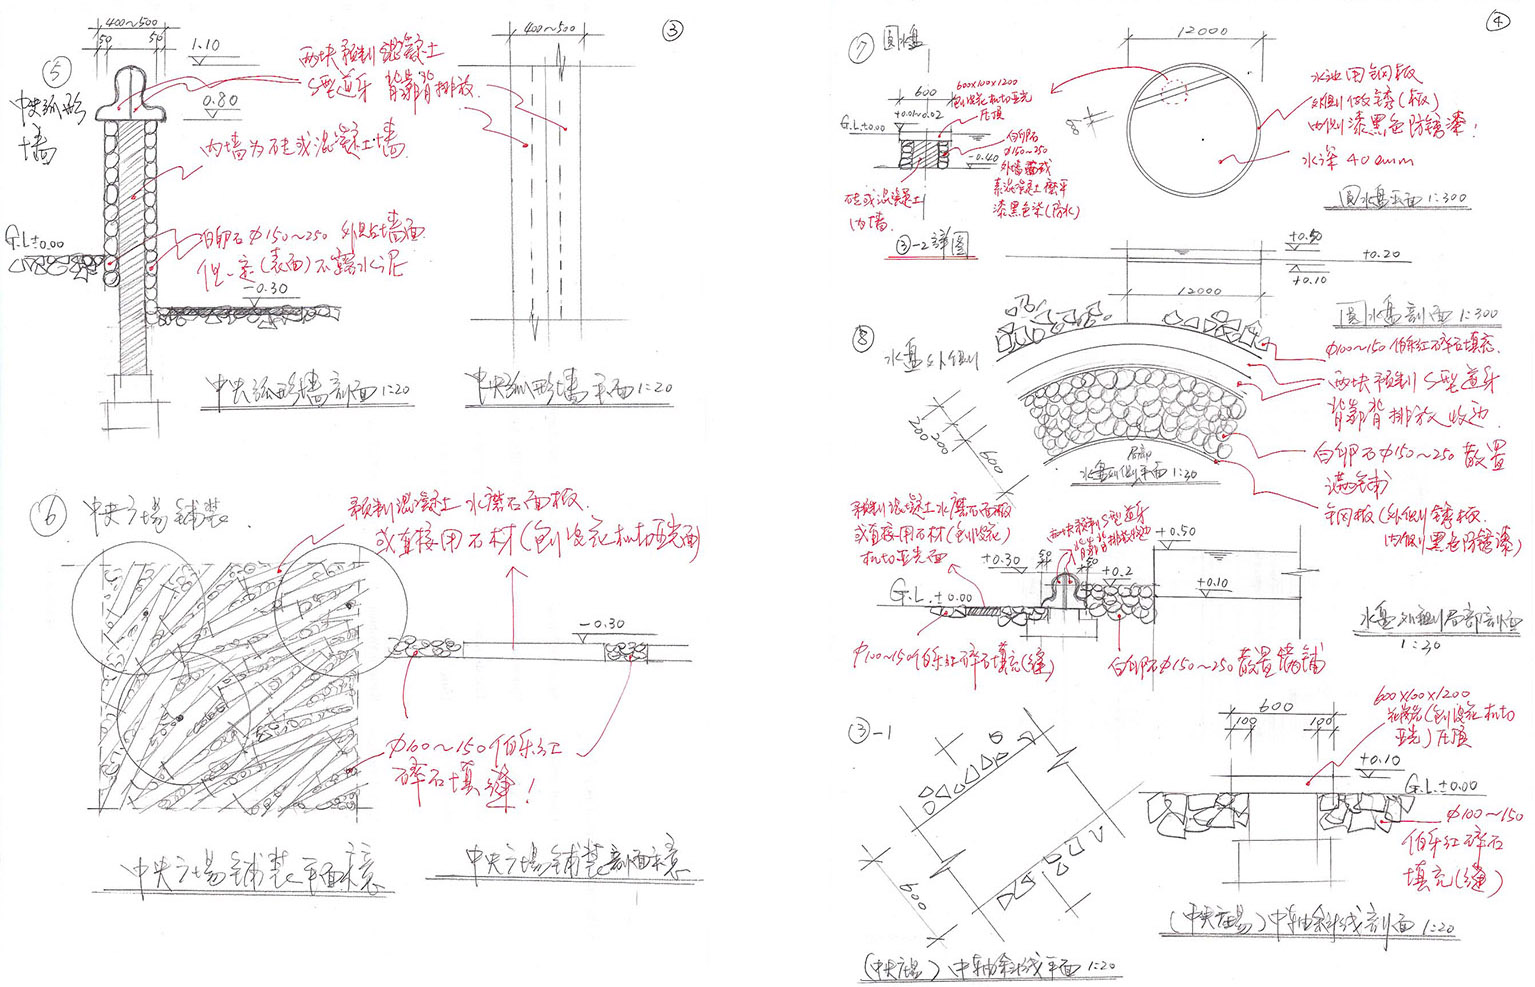 ③
⑤
中央弧形
墙
400~500
50
50
1.10
0.80
两块预制混凝土
S型道牙 背靠背排放.
内墙为砖或混凝土墙.
G.L±0.00
白卵石φ150~250 外贴墙面.
但一定(表面)不露水泥
-0.30
中央弧形墙剖面 1:20
400~500
中央弧形墙平面 1:20
⑥ 中央广场铺装
预制混凝土水磨石面板
或直接用石材(刨浪花机切亚光面)
-0.30
φ100~150伯乐红
碎石填缝!
中央广场铺装平面示意
中央广场铺装剖面示意
④
⑦ 圆水盘
600
600x100x1200
刨浪花机切亚光
压顶
+0.01~0.02
G.L±0.00
白卵石
φ150~250
外墙面或
素混凝土磨平
漆黑色漆(防水)
-0.40
砖或混凝土
内墙
③-2 详图
12000
水池用钢板
外侧做锈(板)
内侧漆黑色防锈漆!
水深400mm
圆水盘平面 1:300
+0.50
+0.20
+0.10
12000
圆水盘剖面 1:300
⑧
水盘外侧
φ100~150伯乐红碎石填充.
两块预制S型道牙
背靠背排放收边
白卵石φ150~250散置
满铺
钢板(外侧锈板.
内侧黑色防锈漆)
200
200
600
局部
水盘外侧平面 1:20
预制混凝土水磨石面板
或直接用石材(刨浪花
机切亚光面
两块预制S型道牙
背靠背排放收边
+0.30
50
50
+0.2
+0.50
+0.10
G.L.±0.00
φ100~150伯乐红碎石填充(缝)
白卵石φ150~250散置满铺
水盘外侧局部剖面
1:20
③-1
600
(中央广场)中轴斜线平面 1:20
600
100
100
600x100x1200
花岗岩(刨浪花机切
亚光)压顶
+0.10
G.L.±0.00
φ100~150
伯乐红碎石
填充(缝)
(中央广场)中轴斜线剖面 1:20